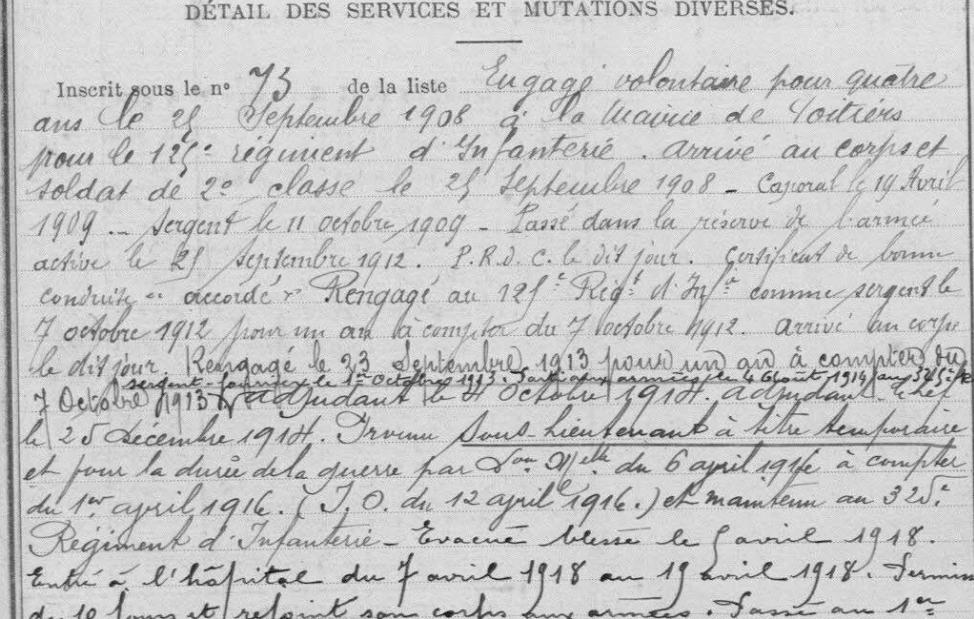 DÉTAIL DES SERVICES ET MUTATIONS DIVERSES.
Inscrit sous le n° 73 de la liste Engagé volontaire pour quatre
ans le 25 Septembre 1908 à la Mairie de Poitiers
pour le 125e régiment d'Infanterie. arrivé au corps et
soldat de 2e classe le 25 Septembre 1908 - Caporal le 19 Avril
1909 - Sergent le 11 octobre 1909 - Passé dans la réserve de l'armée
active le 25 septembre 1912. P.R.d. C. le dit jour. Certificat de bonne
conduite accordé Rengagé au 125e Régt d'Infie comme sergent le
7 octobre 1912 pour un an à compter du 7 octobre 1912. arrivé au corps
le dit jour. Rengagé le 23 Septembre 1913 pour un an à compter du
sergent-fourrier le 1er Octobre 1913. Parti aux armées le 4 Août 1914
7 Octobre 1913 adjudant le 4 Octobre 1914. adjudant-chef
le 25 décembre 1914. Promu Sous-Lieutenant à titre temporaire
et pour la durée de la guerre par Don Melle du 6 avril 1916 à compter
du 1er avril 1916. (J.O. du 12 avril 1916.) et maintenu au 325e
Régiment d'Infanterie - Evacué blessé le 5 avril 1918.
Entré à l'hôpital du 7 avril 1918 au 19 avril 1918. Permis
de 10 jours et rejoint son corps aux armées. Passé au 1er